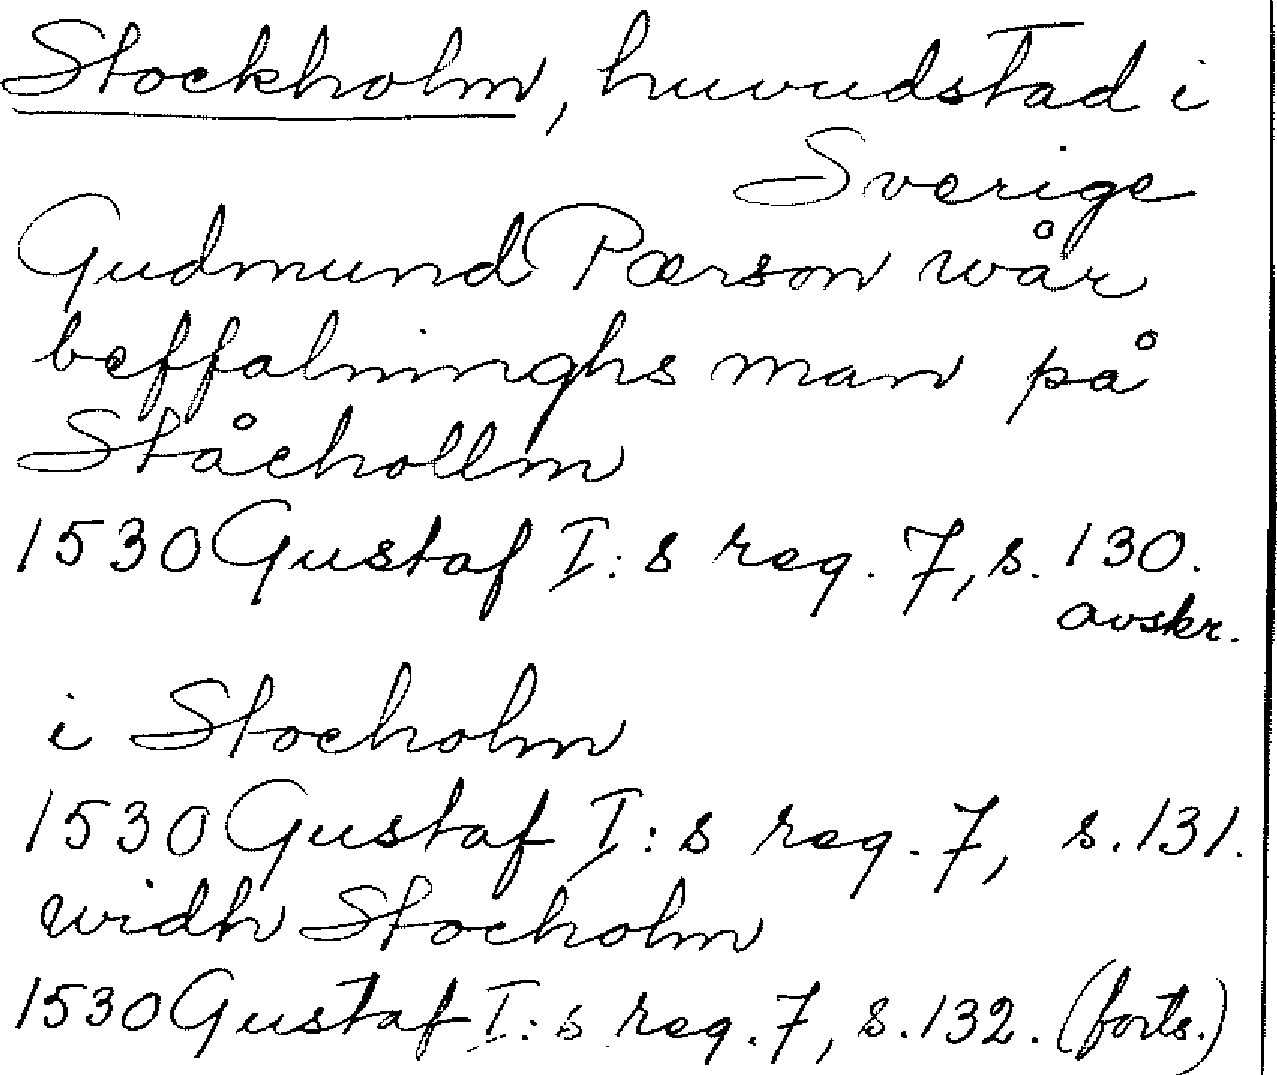 Stockholm, huvudstad i
Sverige
Gudmund Pærson wår
beffalninghs man på
Ståchollm
1530 Gustaf I:s reg. 7, s. 130.
avskr.
i Stocholm
1530 Gustaf I:s reg. 7, s. 131.
widh Stocholm
1530 Gustaf I:s reg. 7, s. 132. (forts.)